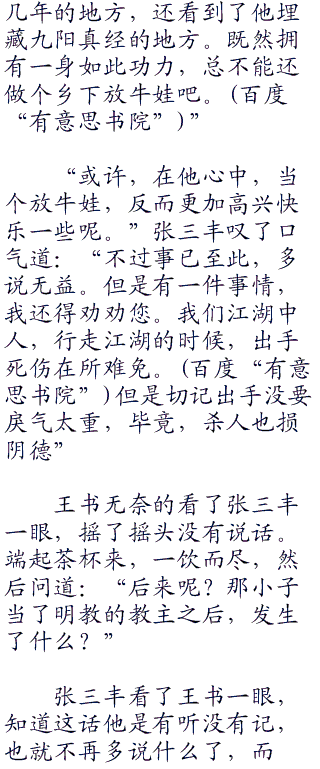 几年的地方，还看到了他埋
藏九阳真经的地方。既然拥
有一身如此功力，总不能还
做个乡下放牛娃吧。(百度
“有意思书院”)”
“或许，在他心中，当
个放牛娃，反而更加高兴快
乐一些呢。”张三丰叹了口
气道：“不过事已至此，多
说无益。但是有一件事情，
我还得劝劝您。我们江湖中
人，行走江湖的时候，出手
死伤在所难免。(百度“有意
思书院”)但是切记出手没要
戾气太重，毕竟，杀人也损
阴德”
王书无奈的看了张三丰
一眼，摇了摇头没有说话。
端起茶杯来，一饮而尽，然
后问道：“后来呢？那小子
当了明教的教主之后，发生
了什么？”
张三丰看了王书一眼，
知道这话他是有听没有记，
也就不再多说什么了，而